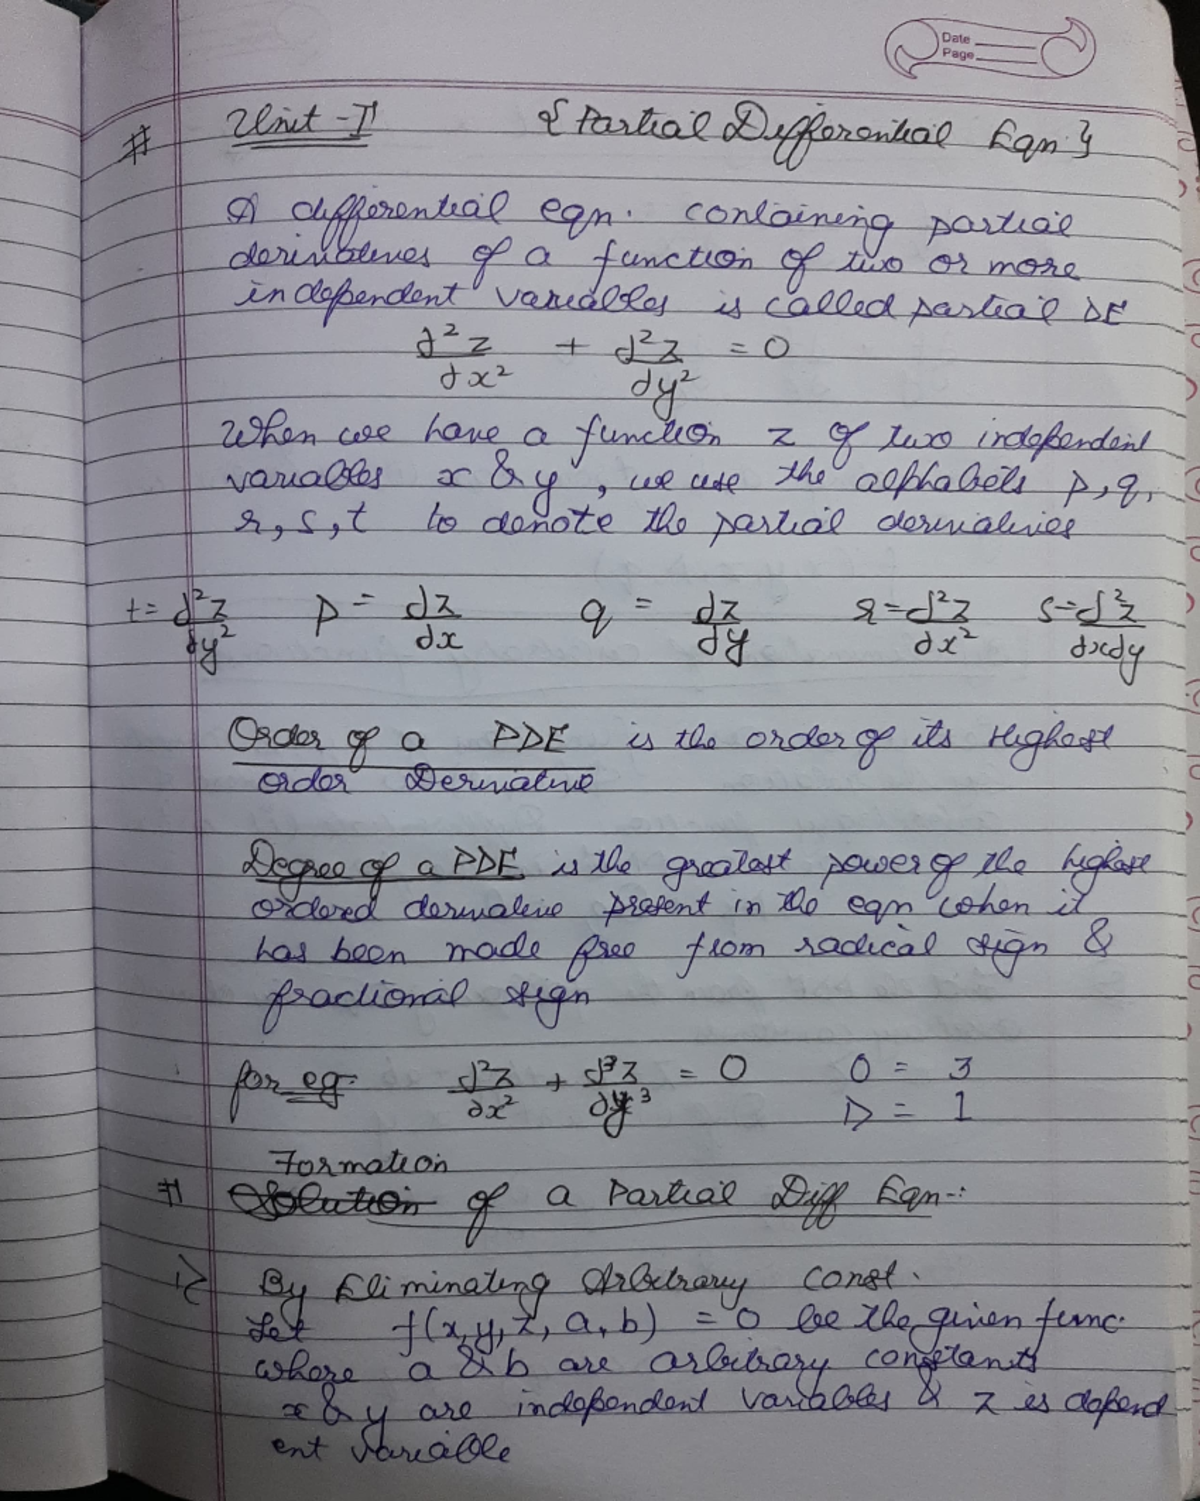 Date
Page
# Unit-I {Partial Differential Eqn.}
A differential eqn. containing partial
derivatives of a function of two or more
independent variables is called partial DE
∂²z/∂x² + ∂²z/∂y² = 0
When we have a function z of two independent
variables x & y, we use the alphabets p, q,
r, s, t to denote the partial derivatives
t = ∂²z/∂y² p = ∂z/∂x q = ∂z/∂y r = ∂²z/∂x² s = ∂²z/∂x∂y
Order of a PDE is the order of its Highest
order Derivative
Degree of a PDE is the greatest power of the highest
ordered derivative present in the eqn when it
has been made free from radical sign &
fractional sign
for eg. ∂²z/∂x² + ∂³z/∂y³ = 0 O = 3
D = 1
Formation
# Solution of a Partial Diff Eqn-:
1> By Eliminating Arbitrary const.
Let f(x,y,z,a,b) = 0 be the given func.
where a & b are arbitrary constants
x & y are independent variables & z is depend
ent variable